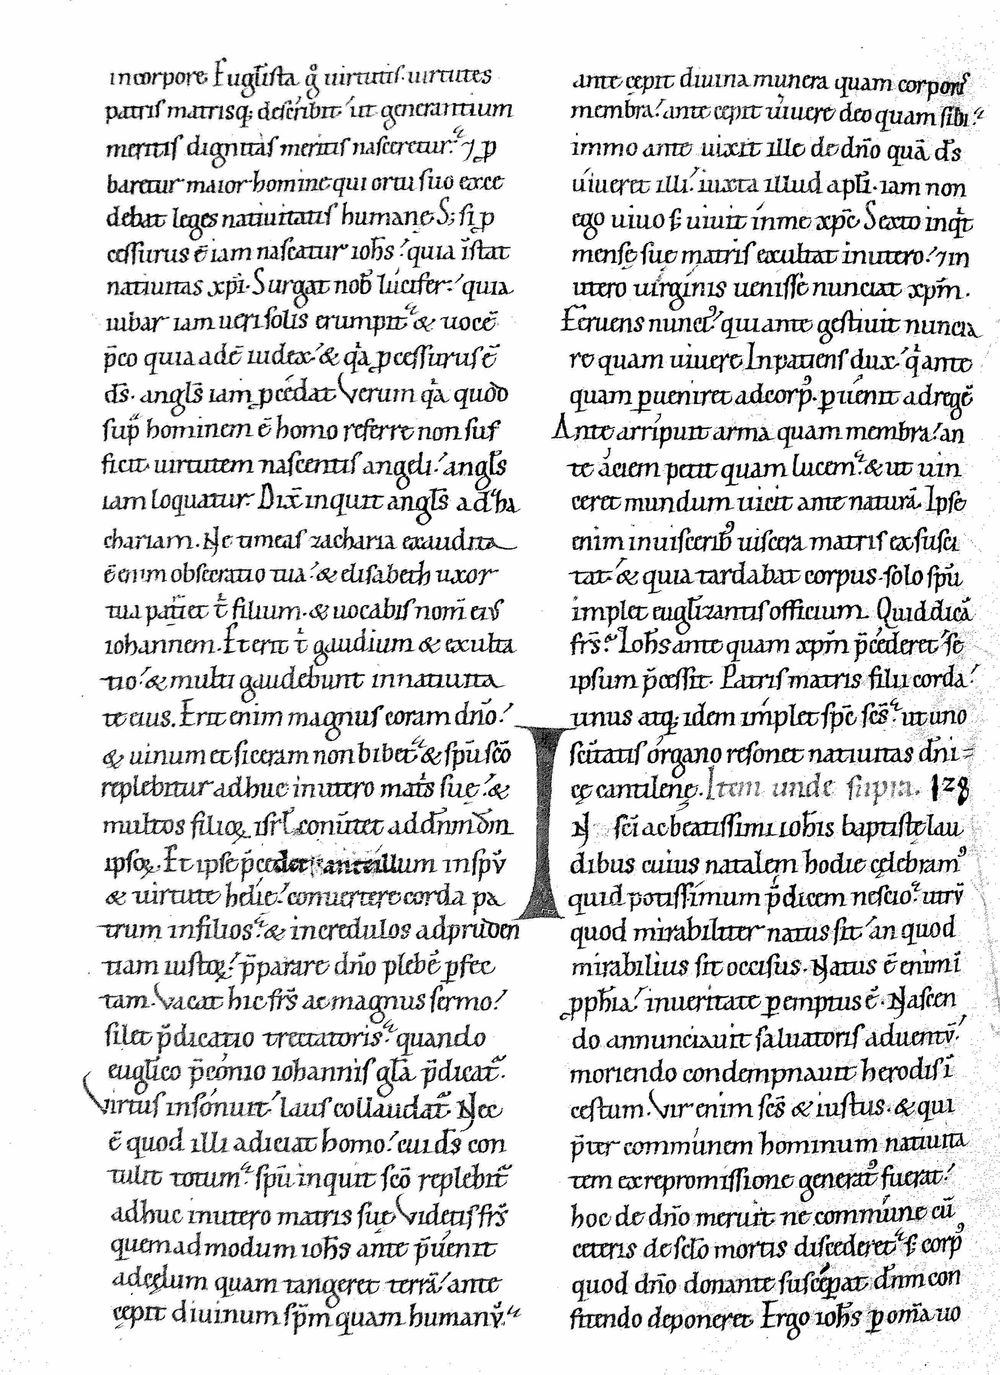 incorpore Eugl̄ista g̊ uirtutis. uirtutes
patris matrisq; describit. ut generantium
meritis dignitas meritis nasceretur. ⁊ ꝓ
baretur maior homine qui ortu suo exce
debat leges natiuitatis humanę S; si p̄
cessurus ē iam nascatur ioħs. quia īstat
natiuitas xp̄i. Surgat nob̄ lucifer. quia
iubar iam ueri solis erumpit. & uocē
p̄co quia adē iudex. & qa p̄cessurus ē
d̄s. angl̄s iam p̄cedat Verum qa quod
sup̄ hominem ē homo referre non suf
ficit uirtutem nascentis angeli. angl̄s
iam loquatur. Dix̄ inquit angl̄s ad za
chariam. Ne timeas zacharia exaudita
ē enim obsecratio tua. & elisabeth uxor
tua pariet t̄ filium. & uocabis nom̄ eius
iohannem. Et erit t̄ gaudium & exulta
tio. & multi gaudebunt innatiuita
te eius. Erit enim magnus coram dn̄o.
& uinum et siceram non bibet. & sp̄u sc̄o
replebitur adhuc inutero matris suę. &
multos filioꝝ isrl̄ conūtet ad dn̄m dm̄
ipsoꝝ. Et ipse p̄cedet ante illum inspū
& uirtute helie. conuertere corda pa
trum infilios. & incredulos adpruden
tiam iustoꝝ. p̄parare dn̄o plebē ꝑfec
tam. Vacat hic fr̄s ac magnus sermo.
silet p̄dicatio tractatoris. quando
euglico p̄conio iohannis gl̄a p̄dicat̄.
Virtus insonuit. laus collaudat̄. Nec
ē quod illi adiciat homo. cui d̄s con
tulit totum. sp̄u inquit sc̄o replebit̄
adhuc inutero matris suę Videtis fr̄s
quemadmodum ioħs ante p̄uenit
adcęlum quam tangeret terrā. ante
cępit diuinum sp̄m quam humanū.
ante cępit diuina munera quam corporis
membra. ante cępit uiuere deo quam sibi.
immo ante uixit ille de dn̄o quā d̄s
uiueret illi. iuxta illud apl̄i. iam non
ego uiuo s; uiuit inme xp̄c Sexto inqt
mense suę matris exultat inutero. ⁊ in
utero uirginis uenisse nunciat xp̄m.
Feruens nunci⁹. qui ante gestiuit nuncia
re quam uiuere Inpatiens dux. q̄ ante
quam ꝑueniret adcorp⁹. ꝑuenit adregē
Ante arripuit arma quam membra. an
te aciem petit quam lucem. & ut uin
ceret mundum uicit ante naturā. Ipse
enim inuiscerib⁹ uiscera matris exsusci
tat. & quia tardabat corpus. solo sp̄u
implet euglizantis officium. Quid dicā
fr̄s. Ioħs ante quam xp̄m p̄cederet. se
ipsum p̄cessit. Patris matris filii corda.
unus atq; idem implet sp̄c sc̄s. ut uno
sc̄itatis organo resonet natiuitas dn̄i-
cę cantilenę. Item unde supra. 128
IN sc̄i ac beatissimi ioħis baptistę lau
dibus cuius natalem hodie celebram⁹
quid potissimum p̄dicem nescio. utrū
quod mirabiliter natus sit. an quod
mirabilius sit occisus. Natus ē enim ī
ꝓph̄ia. inueritate ꝑemptus ē. Nascen
do annunciauit saluatoris aduentū.
moriendo condempnauit herodis ī
cestum. Vir enim sc̄s & iustus. & qui
p̄ter communem hominum natiuita
tem ex repromissione generat⁹ fuerat.
hoc de dn̄o meruit ne commune cū
ceteris desclo mortis discederet. s; corp⁹
quod dn̄o donante susceperat dn̄m con
fitendo deponeret Ergo ioħs ꝑ om̄a uo